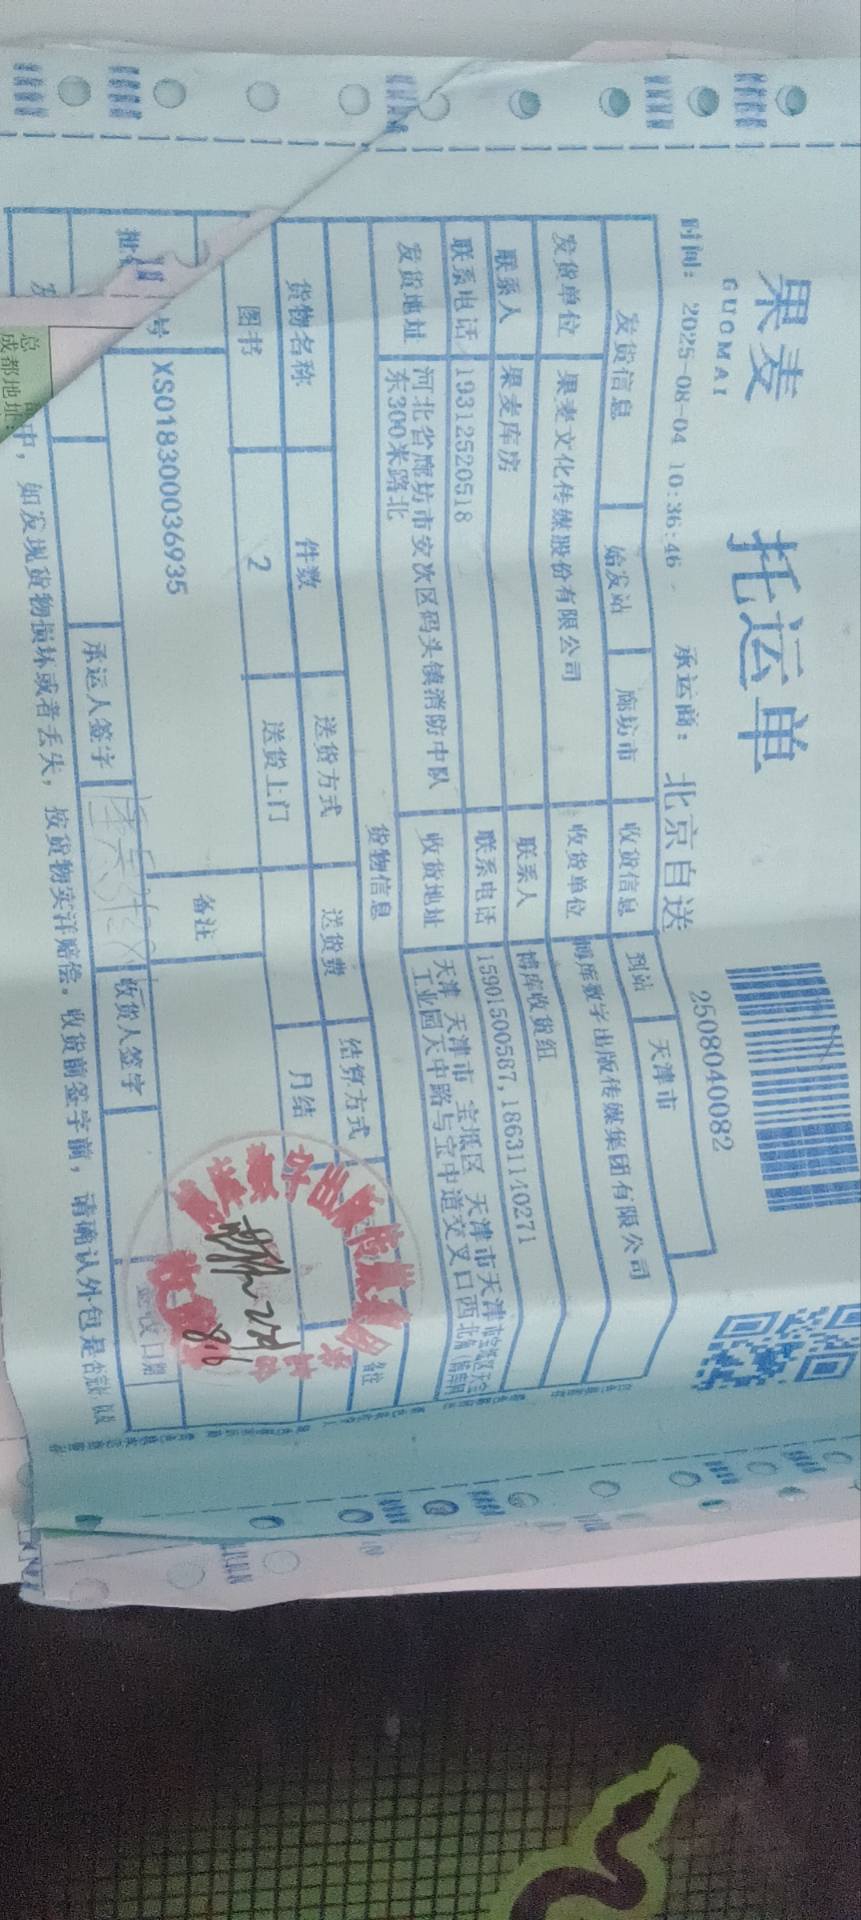 果麦 托运单
GUOMAI
2508040082
时间： 2025-08-04 10:36:46 承运商： 北京自送
发货信息 始发站 廊坊市 收货信息 到站 天津市
发货单位 果麦文化传媒股份有限公司 收货单位 博库数字出版传媒集团有限公司
联系人 果麦库房 联系人 博库收货组
联系电话 19312520518 联系电话 15901500587,18631140271
发货地址 河北省廊坊市安次区码头镇消防中队 收货地址 天津 天津市 宝坻区 天津市天津市宝坻区天宝
东300米路北 工业园天中路与宝中道交叉口西北角
货物信息
货物名称 件数 送货方式 送货费 结算方式 备注
图书 2 送货上门 月结
号 XS018300036935 备注
承运人签字 收货人签字 签收日期
中，如发现货物损坏或者丢失，按货物实洋赔偿。收货前签字前，请确认外包是否完好
总
成都地址：